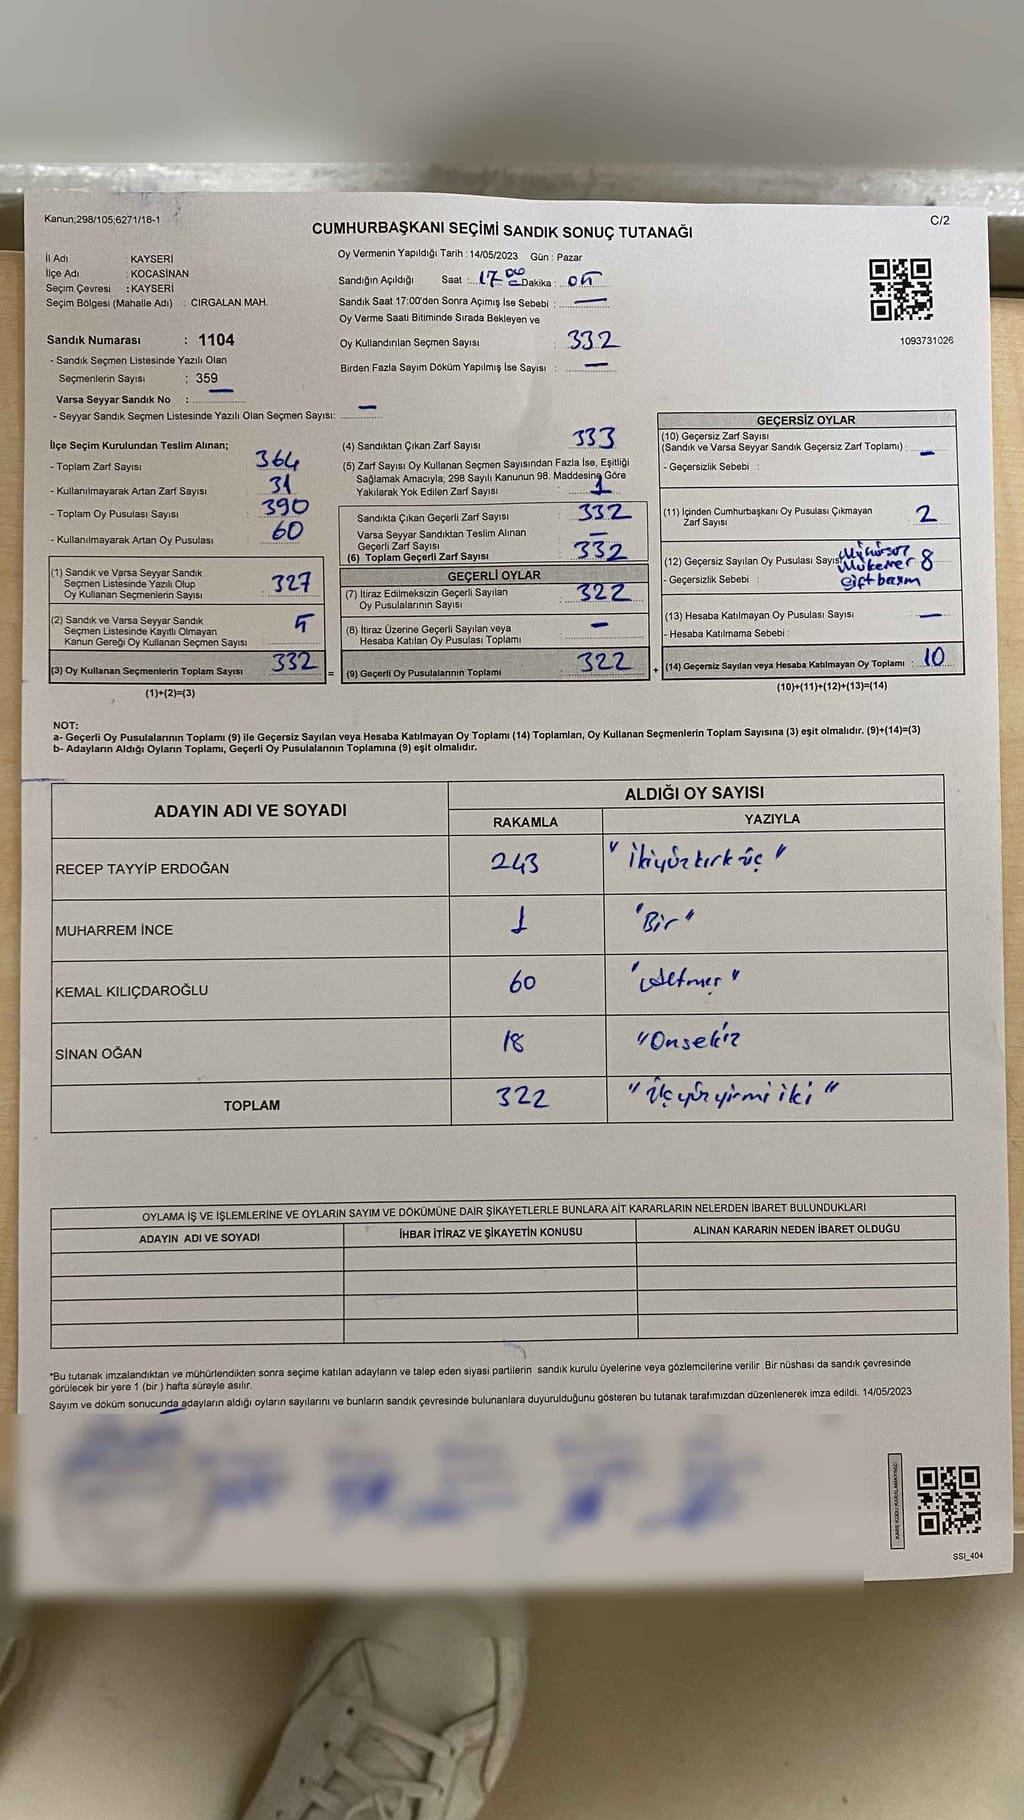 Kanun;298/105;6271/18-1
C/2
CUMHURBAŞKANI SEÇİMİ SANDIK SONUÇ TUTANAĞI
İl Adı : KAYSERİ
İlçe Adı : KOCASİNAN
Seçim Çevresi : KAYSERİ
Seçim Bölgesi (Mahalle Adı) : CIRGALAN MAH.
Sandık Numarası : 1104
- Sandık Seçmen Listesinde Yazılı Olan
Seçmenlerin Sayısı : 359
Varsa Seyyar Sandık No : —
- Seyyar Sandık Seçmen Listesinde Yazılı Olan Seçmen Sayısı: —
Oy Vermenin Yapıldığı Tarih : 14/05/2023 Gün : Pazar
Sandığın Açıldığı Saat : 17 Dakika : 05
Sandık Saat 17:00'den Sonra Açımış İse Sebebi : —
Oy Verme Saati Bitiminde Sırada Bekleyen ve
Oy Kullandırılan Seçmen Sayısı : 332
Birden Fazla Sayım Döküm Yapılmış İse Sayısı : —
1093731026
İlçe Seçim Kurulundan Teslim Alınan;
- Toplam Zarf Sayısı 364
- Kullanılmayarak Artan Zarf Sayısı 31
- Toplam Oy Pusulası Sayısı 390
- Kullanılmayarak Artan Oy Pusulası 60
(1) Sandık ve Varsa Seyyar Sandık
Seçmen Listesinde Yazılı Olup
Oy Kullanan Seçmenlerin Sayısı 327
(2) Sandık ve Varsa Seyyar Sandık
Seçmen Listesinde Kayıtlı Olmayan
Kanun Gereği Oy Kullanan Seçmen Sayısı 5
(3) Oy Kullanan Seçmenlerin Toplam Sayısı 332 =
(1)+(2)=(3)
(4) Sandıktan Çıkan Zarf Sayısı 333
(5) Zarf Sayısı Oy Kullanan Seçmen Sayısından Fazla İse, Eşitliği
Sağlamak Amacıyla; 298 Sayılı Kanunun 98. Maddesine Göre
Yakılarak Yok Edilen Zarf Sayısı 1
Sandıkta Çıkan Geçerli Zarf Sayısı 332
Varsa Seyyar Sandıktan Teslim Alınan
Geçerli Zarf Sayısı —
(6) Toplam Geçerli Zarf Sayısı 332
GEÇERLİ OYLAR
(7) İtiraz Edilmeksizin Geçerli Sayılan
Oy Pusulalarının Sayısı 322
(8) İtiraz Üzerine Geçerli Sayılan veya
Hesaba Katılan Oy Pusulası Toplamı —
(9) Geçerli Oy Pusulalarının Toplamı 322 +
GEÇERSİZ OYLAR
(10) Geçersiz Zarf Sayısı
(Sandık ve Varsa Seyyar Sandık Geçersiz Zarf Toplamı) : —
- Geçersizlik Sebebi :
(11) İçinden Cumhurbaşkanı Oy Pusulası Çıkmayan
Zarf Sayısı 2
(12) Geçersiz Sayılan Oy Pusulası Sayısı 8
- Geçersizlik Sebebi : çift basım
(13) Hesaba Katılmayan Oy Pusulası Sayısı —
- Hesaba Katılmama Sebebi :
(14) Geçersiz Sayılan veya Hesaba Katılmayan Oy Toplamı : 10
(10)+(11)+(12)+(13)=(14)
NOT:
a- Geçerli Oy Pusulalarının Toplamı (9) ile Geçersiz Sayılan veya Hesaba Katılmayan Oy Toplamı (14) Toplamları, Oy Kullanan Seçmenlerin Toplam Sayısına (3) eşit olmalıdır. (9)+(14)=(3)
b- Adayların Aldığı Oyların Toplamı, Geçerli Oy Pusulalarının Toplamına (9) eşit olmalıdır.
ADAYIN ADI VE SOYADI
ALDIĞI OY SAYISI
RAKAMLA YAZIYLA
RECEP TAYYİP ERDOĞAN 243 "İkiyüzkırk üç"
MUHARREM İNCE 1 "Bir"
KEMAL KILIÇDAROĞLU 60 "Altmış"
SİNAN OĞAN 18 "Onsekiz
TOPLAM 322 "Üçyüzyirmi iki"
OYLAMA İŞ VE İŞLEMLERİNE VE OYLARIN SAYIM VE DÖKÜMÜNE DAİR ŞİKAYETLERLE BUNLARA AİT KARARLARIN NELERDEN İBARET BULUNDUKLARI
ADAYIN ADI VE SOYADI İHBAR İTİRAZ VE ŞİKAYETİN KONUSU ALINAN KARARIN NEDEN İBARET OLDUĞU
*Bu tutanak imzalandıktan ve mühürlendikten sonra seçime katılan adayların ve talep eden siyasi partilerin sandık kurulu üyelerine veya gözlemcilerine verilir .Bir nüshası da sandık çevresinde
görülecek bir yere 1 (bir ) hafta süreyle asılır.
Sayım ve döküm sonucunda adayların aldığı oyların sayılarını ve bunların sandık çevresinde bulunanlara duyurulduğunu gösteren bu tutanak tarafımızdan düzenlenerek imza edildi. 14/05/2023
KARE KODU KARALAMAYINIZ!
SSI_404